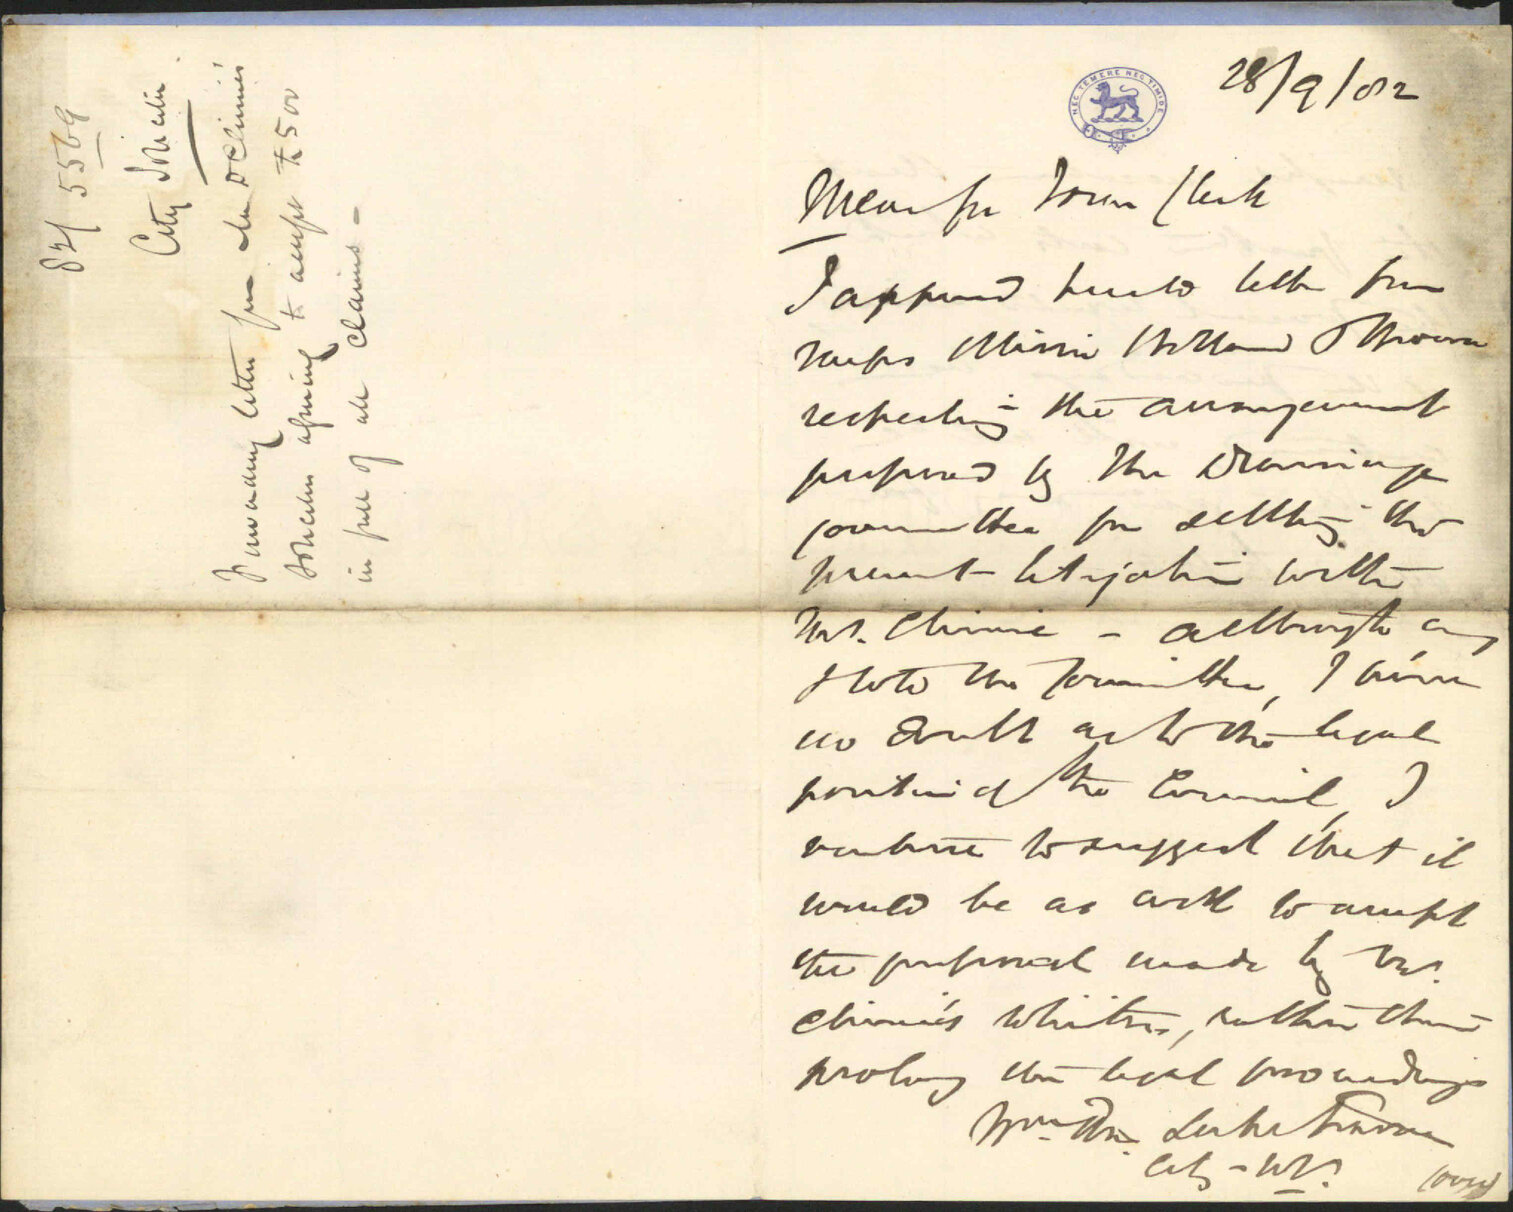 82/5569
City Solicitor.
Forwarding letter from Mr D Clinnie's
Solicitor agreeing to accept £500
in full of all claims -
NEC TEMERE NEC TIMIDE
28/9/82
Memo for Town Clerk
I append hereto letter from
Messrs Holland &
respecting the arrangement
proposed by the Drainage
Committee for settling the
present litigation with
Mr. - although as
I told the Committee, I have
no doubt as to the legal
position of the Council, I
venture to suggest that it
would be as well to accept
the proposal made by Mr.
Solicitors, rather than
prolong the legal proceedings
City Solr.
(over)